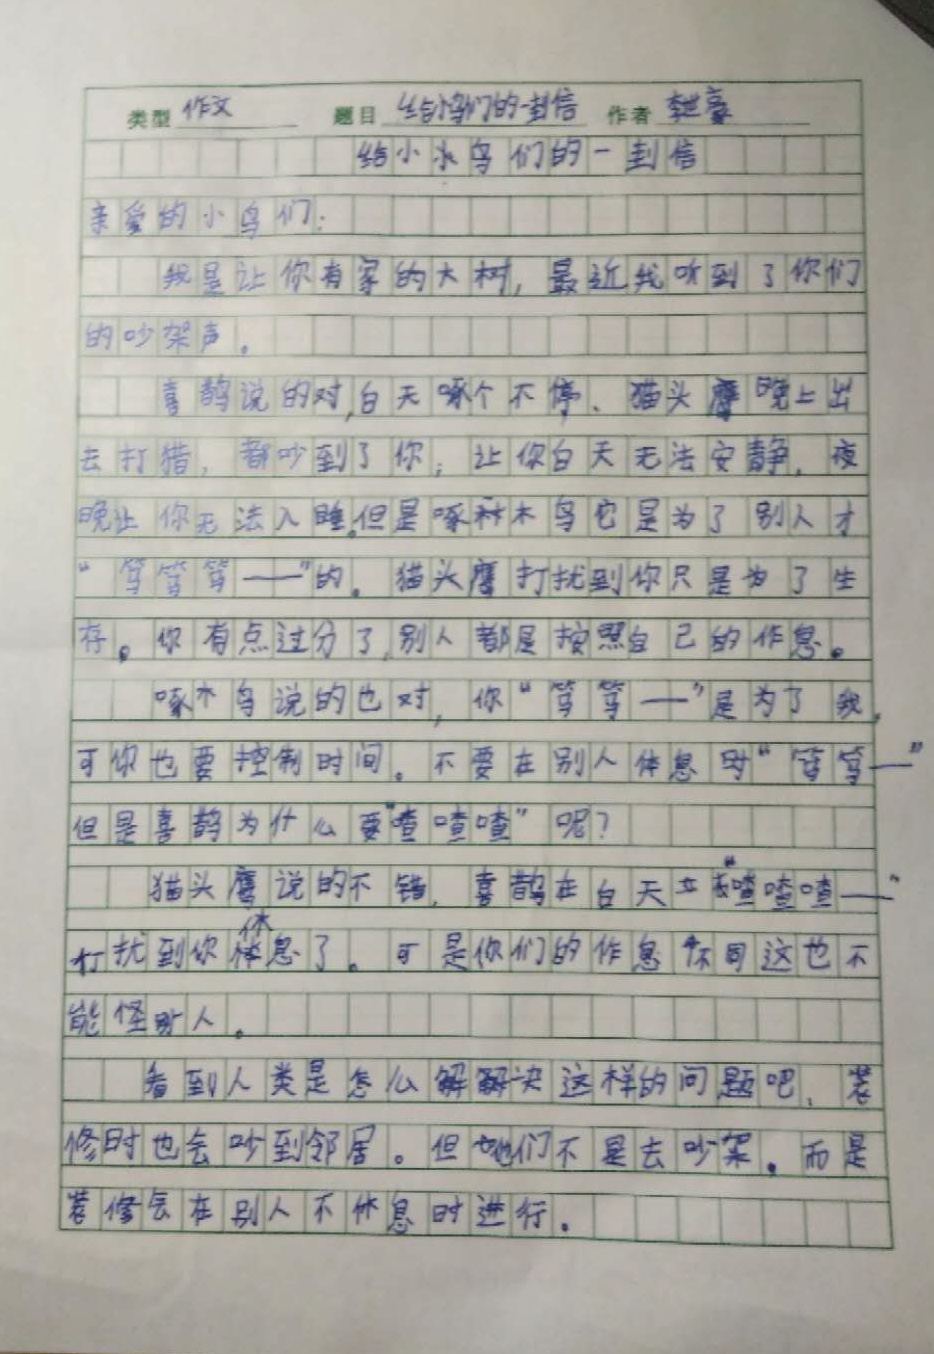 类型 作文 题目 给小鸟们的一封信 作者
给小水鸟们的一封信
亲爱的小鸟们:
我是让你有家的大树,最近我听到了你们
的吵架声。
喜鹊说的对,白天啄个不停、猫头鹰晚上出
去打猎,都吵到了你,让你白天无法安静,夜
晚让你无法入睡,但是啄木鸟它是为了别人才
“笃笃笃——”的。猫头鹰打扰到你只是为了生
存。你有点过分了,别人都是按照自己的作息。
啄木鸟说的也对,你“笃笃——”是为了我,
可你也要控制时间。不要在别人体息时“笃笃——”
但是喜鹊为什么要“喳喳喳”呢?
猫头鹰说的不错,喜鹊在白天“喳喳喳——”
打扰到你休息了。可是你们的作息不同这也不
能怪别人。
看到人类是怎么解解决这样的问题吧、装
修时也会吵到邻居。但他们不是去吵架。而是
装修会在别人不休息时进行。